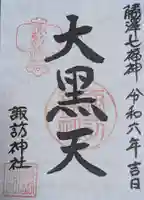 藤澤七福神 令和六年吉日
大黒天
諏訪神社